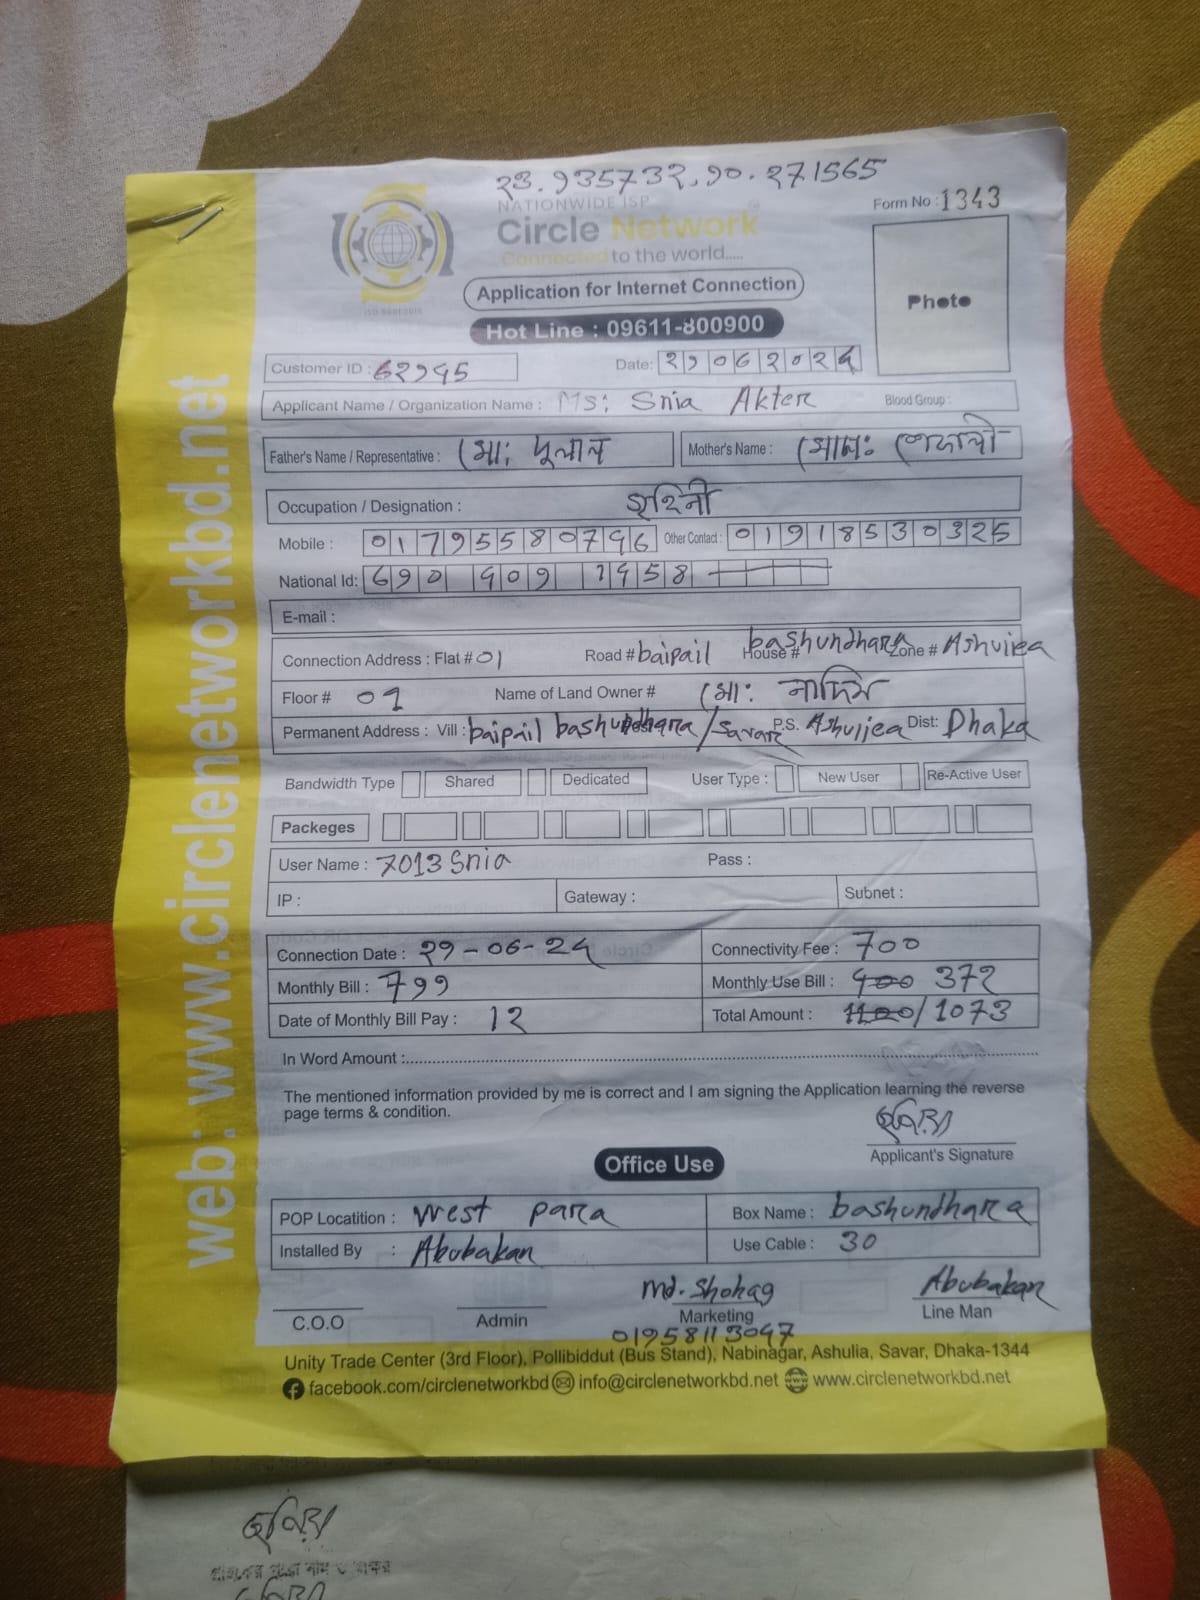 23.935732, 90.271565
NATIONWIDE ISP
Circle Network
Connected to the world.....
Form No : 1343
Application for Internet Connection
Photo
Hot Line : 09611-800900
Customer ID : 62995 Date: 29062024
Applicant Name / Organization Name : Ms: Snia Akter Blood Group :
Father's Name / Representative : মো: দুলাল Mother's Name : মোছাঃ শেফালী
Occupation / Designation : গৃহিনী
Mobile : 01795580796 Other Contact : 01918530325
National Id: 690 909 1958
E-mail :
Connection Address : Flat # 01 Road # baipail House # bashundhara Zone # Ashuliea
Floor # 01 Name of Land Owner # মো: নাদিম
Permanent Address : Vill : baipail bashundhara / Savar P.S. Ashuliea Dist: Dhaka
Bandwidth Type Shared Dedicated User Type : New User Re-Active User
Packeges
User Name : 7013 Snia Pass :
IP : Gateway : Subnet :
Connection Date : 29-06-24 Connectivity Fee : 700
Monthly Bill : 799 Monthly Use Bill : 400 372
Date of Monthly Bill Pay : 12 Total Amount : 1100/ 1073
In Word Amount :
The mentioned information provided by me is correct and I am signing the Application learning the reverse
page terms & condition.
ছনিয়া
Applicant's Signature
Office Use
POP Locatition : West para Box Name : bashundhara
Installed By : Abubakar Use Cable : 30
Md. Shohag Abubakar
C.O.O Admin Marketing Line Man
01958113047
Unity Trade Center (3rd Floor), Pollibiddut (Bus Stand), Nabinagar, Ashulia, Savar, Dhaka-1344
facebook.com/circlenetworkbd info@circlenetworkbd.net www.circlenetworkbd.net
web: www.circlenetworkbd.net
ছনিয়া